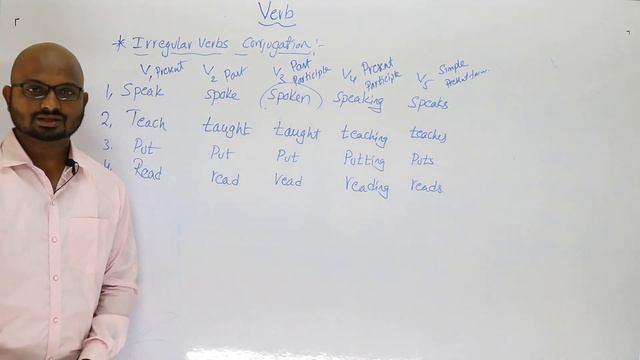 Verb
* Irregular Verbs Conjugation:-
V1 Present V2 Past V3 Past Participle V4 Present Participle V5 Simple Present
1, Speak spoke Spoken Speaking Speaks
2, Teach taught taught teaching teaches
3. Put Put Put Putting Puts
4. Read read read reading reads